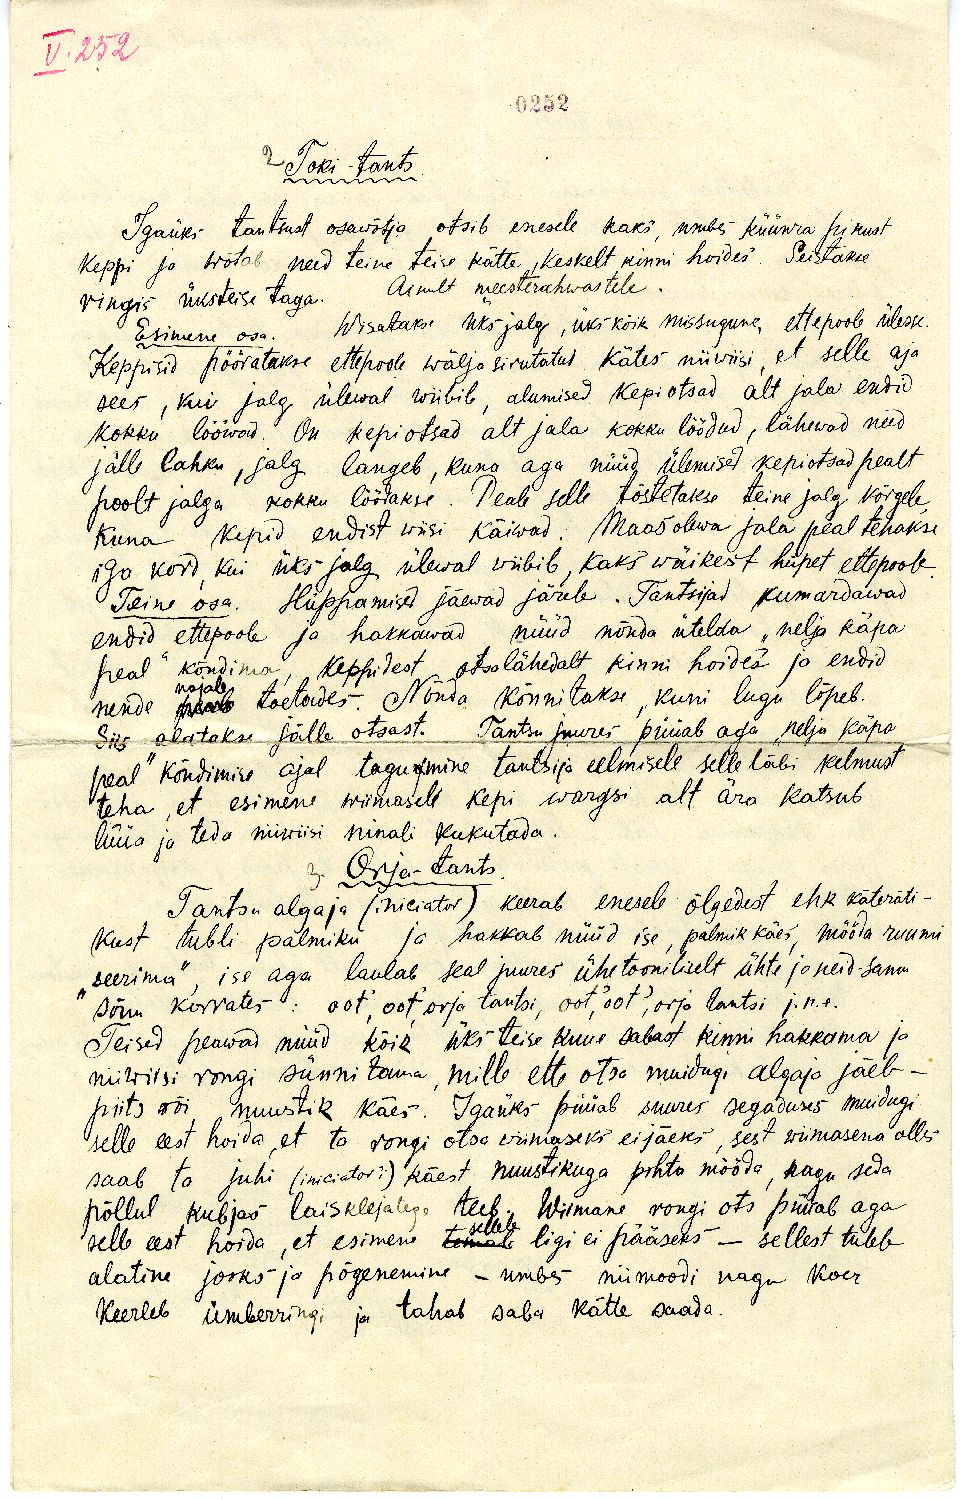 V. 252
0252
2 Toki-tants
Igaüks tantsust osawõtja otsib enesele kaks, umbes küünra pikust
keppi ja wõtab need teine teise kätte, keskelt kinni hoides. Seistakse
ringis üksteise taga. Ainult meesterahwastele.
Esimene osa. Wisatakse üks jalg, ükskõik missugune, ettepoole ülesse.
Keppisid pööratakse ettepoole wälja sirutatud kätes niiwiisi, et selle aja
sees, kui jalg ülewal wiibib, alumised kepiotsad alt jala endid
kokku lööwad. On kepiotsad alt jala kokku löödud, lähewad need
jälle lahku, jalg langeb, kuna aga nüüd ülemised kepiotsad pealt
poolt jalga kokku löötakse. Peale selle tõstetakse teine jalg kõrgele,
kuna kepid endist wiisi käiwad. Maas olewa jala peal tehakse
iga kord, kui üks jalg ülewal wiibib, kaks wäikest hüpet ettepoole.
Teine osa. Hüppamised jäewad järele. Tantsijad kumardawad
endid ettepoole ja hakkawad nüüd nõnda ütelda „nelja käpa
peal" kõndima, keppidest otsa lähedalt kinni hoides ja endid
nende najale toetades. Nõnda kõnnitakse, kuni lugu lõpeb.
Siis alatakse jälle otsast. Tantsu juures püüab aga „nelja käpa
peal" kõndimise ajal tagumine tantsija eelmisele selle läbi kelmust
teha, et esimene wiimasele kepi wargsi alt ära katsub
lüüa ja teda niiwiisi ninali kukutada.
3. Orja-tants.
Tantsu algaja (iniciator) keerab enesele õlgedest ehk käteräti-
kust tubli palmiku ja hakkab nüüd ise, palmik käes, mööda ruumi
„seerima", ise aga laulab seal juures ühetooniliselt ühte ja neid-samu
sõnu korrates: oot', oot', orja tantsi, oot', oot', orja tantsi j.n.e.
Teised peawad nüüd kõik üks teise kuue sabast kinni hakkama ja
niiwiisi rongi sünnitama, mille ette otsa muidugi algaja jäeb –
piits või nuustik käes. Igaüks püüab suures segaduses muidugi
selle eest hoida, et ta rongi otsa wiimaseks ei jäeks, sest wiimasena olles
saab ta juhi (iniciator?) käest nuustikuga pihta mööda, nagu seda
põllul kubjas laisklejatega teeb. Wiimane rongi ots püüab aga
selle eest hoida, et esimene sellele ligi ei pääseks – sellest tuleb
alatine jooks ja põgenemine – umbes niimoodi nagu koer
keerleb ümberringi ja tahab saba kätte saada.